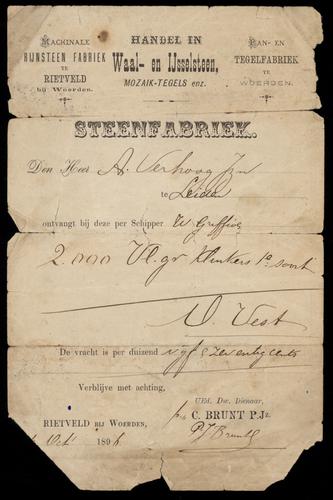 MACHINALE
RIJNSTEEN FABRIEK
TE
RIETVELD
bij Woerden.
HANDEL IN
Waal- en IJsselsteen,
MOZAIK-TEGELS enz.
PAN- EN
TEGELFABRIEK
TE
WOERDEN.
STEENFABRIEK.
Den Heer A. Verhoog Jzn
te Leiden
ontvangt bij deze per Schipper W
2.000 Vl. gr Klinkers 1e soort
V. Vest
De vracht is per duizend vijf & zeventig cents
Verblijve met achting,
UEd. Dw. Dienaar,
C. BRUNT P.Jz.
PJ Brunt
RIETVELD BIJ WOERDEN,
Oct 189